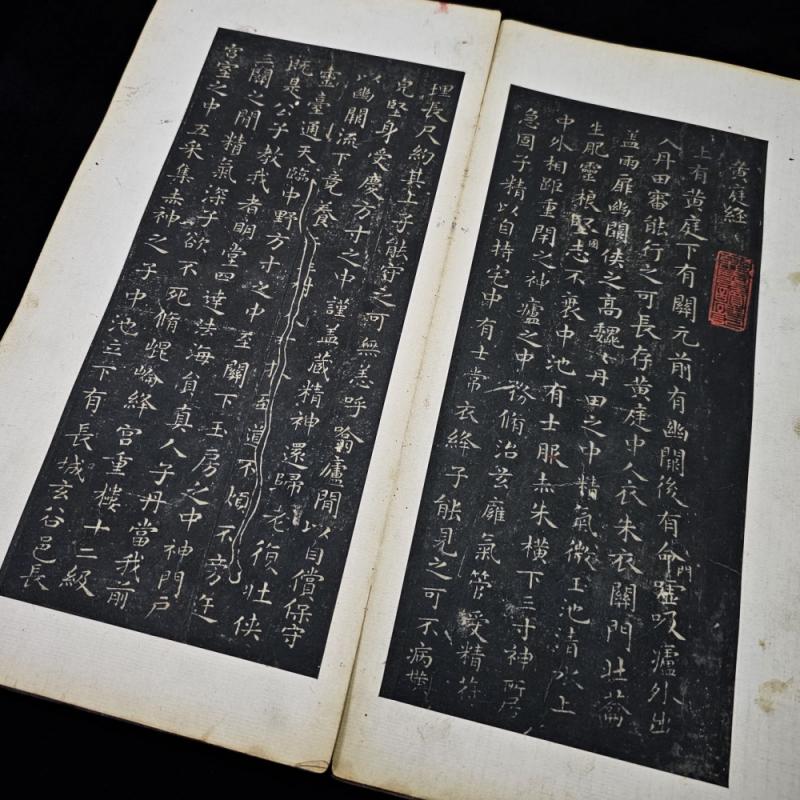 黄庭經
上有黄庭下有關元前有幽闕後有命門噓吸廬外出
入丹田審能行之可長存黄庭中人衣朱衣關門壯籥
盖兩扉幽闕俠之高巍巍丹田之中精氣微玉池清水上
生肥靈根堅固志不衰中池有士服赤朱橫下三寸神所居
中外相距重閉之神廬之中務脩治玄癰氣管受精符
急固子精以自持宅中有士常衣絳子能見之可不病橫
理長尺約其上子能守之可無恙呼噏廬閒以自償保守
完堅身受慶方寸之中謹盖藏精神還歸老復壯俠
以幽闕流下竟養至道不煩不旁迕
靈臺通天臨中野方寸之中至關下玉房之中神門戶
既是公子教我者明堂四達法海員真人子丹當我前
三關之閒精氣深子欲不死脩崐崘絳宮重樓十二級
宮室之中五采集赤神之子中池立下有長城玄谷邑長